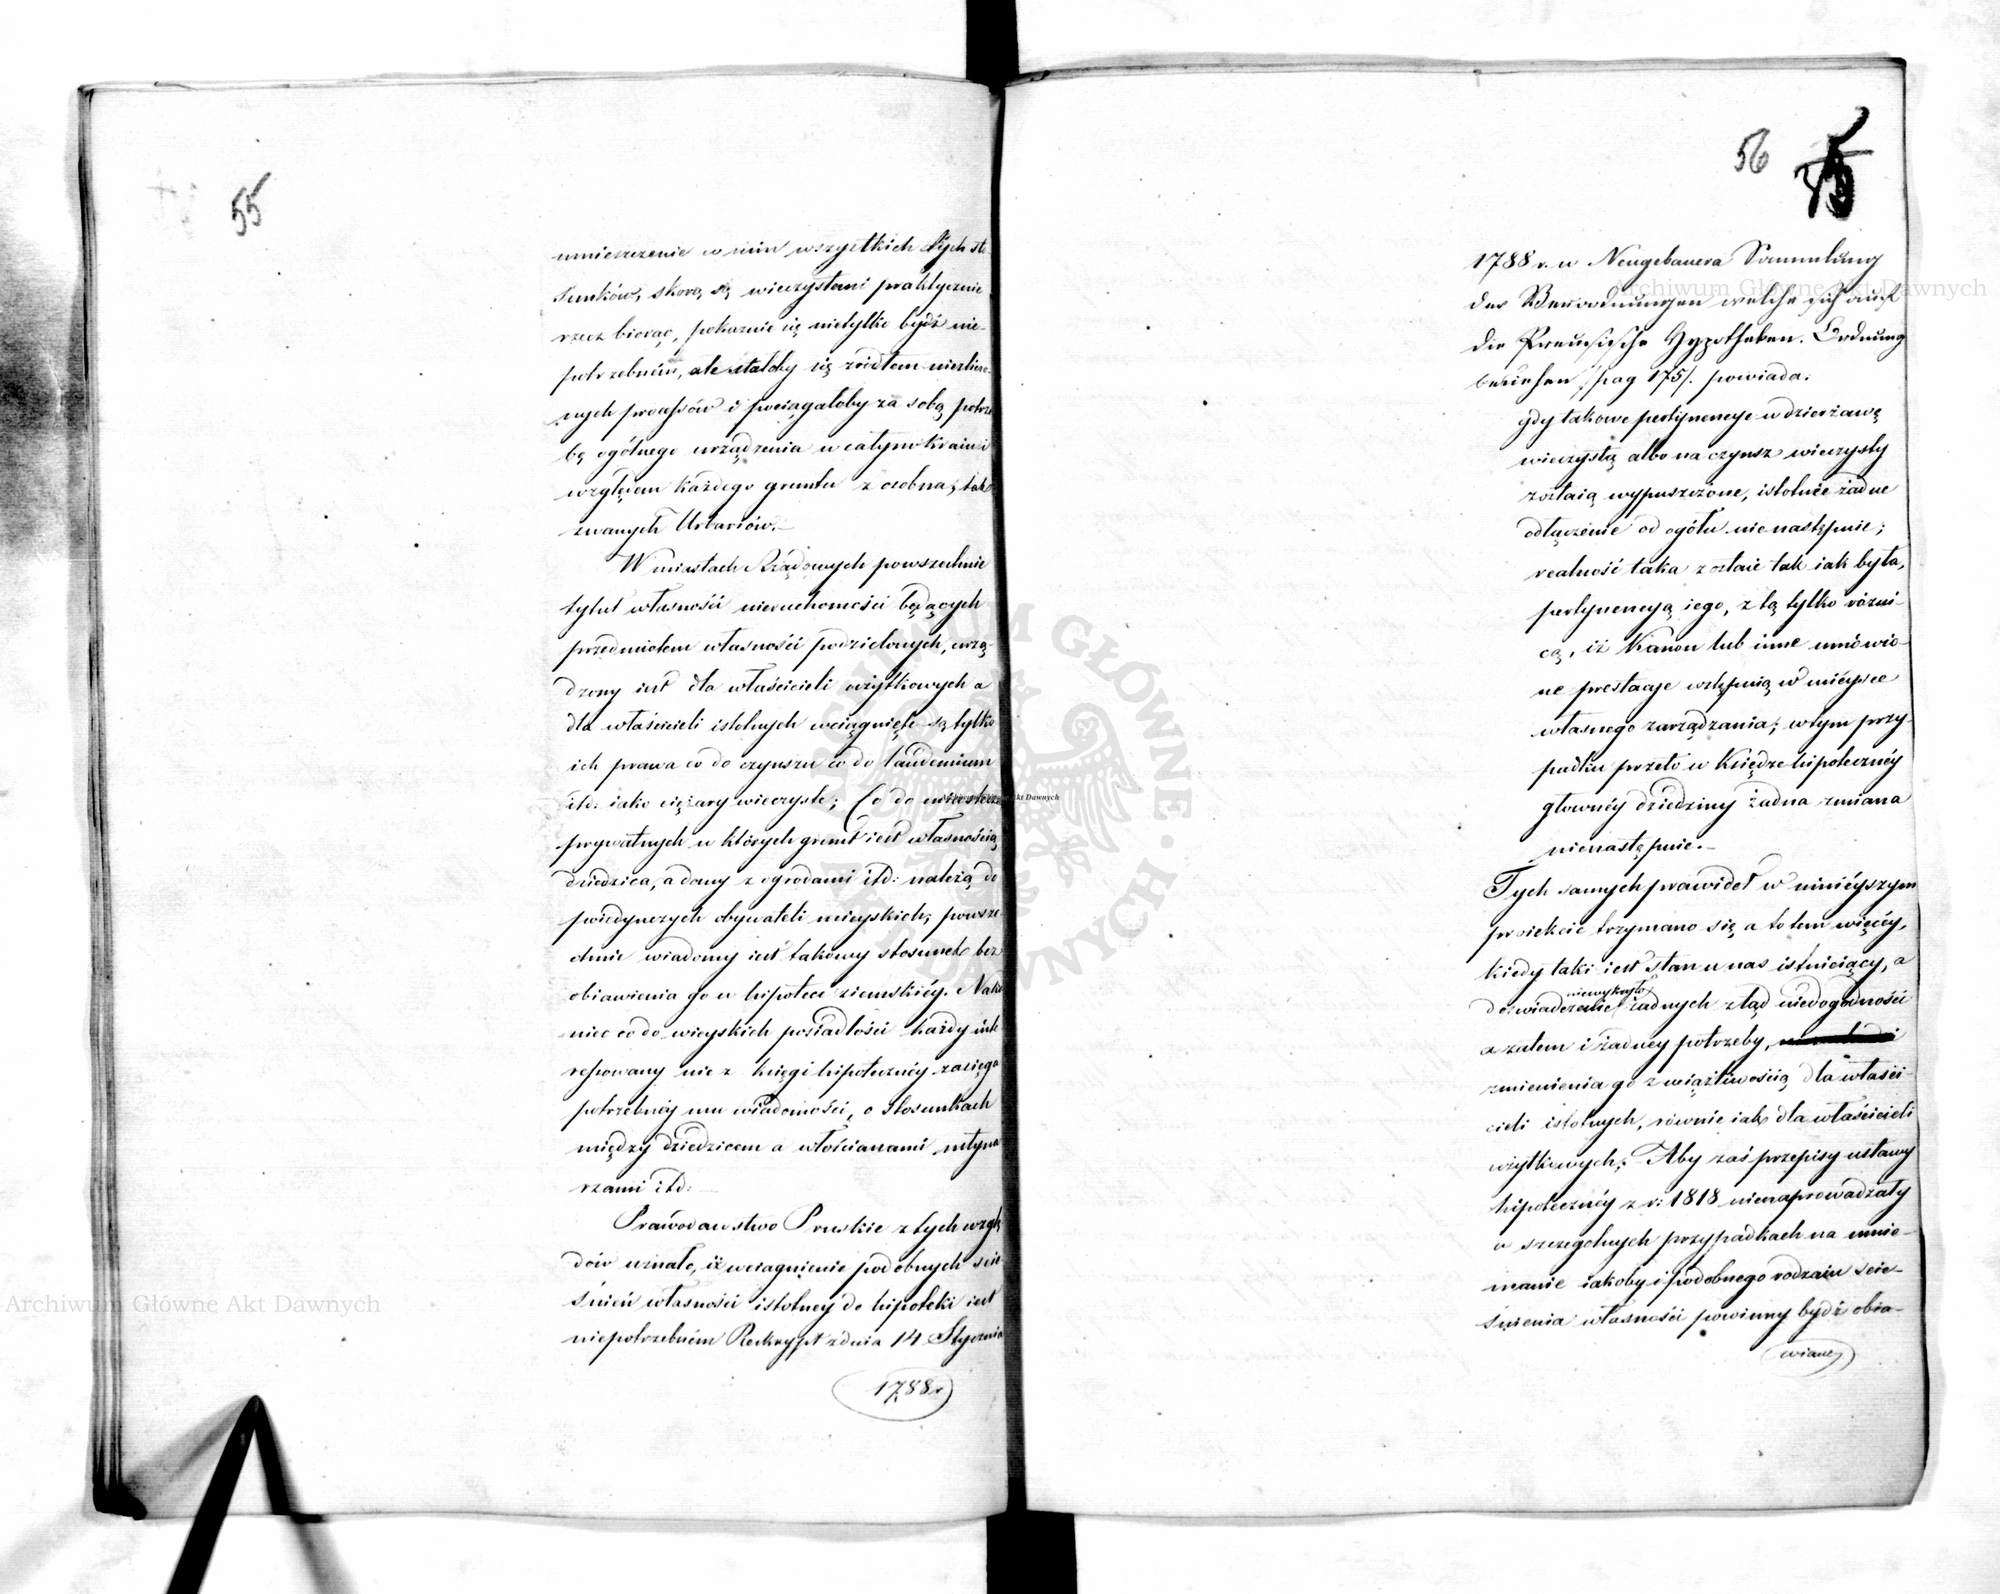 55
umieszczenie w nim wszystkich tych sto
sunków, skoro są wieczystemi praktycznie
rzecz biorąc, pokaznie się nietylko bydź nie-
potrzebném, ale stałoby się źródłem niezliczo-
nych proceſsów i pociągałoby za sobą potrze
bę ogólnego urządzenia w całym kraiu i
względem każdego gruntu z osobna, tak
zwanych Urbariów.
W miastach Rządowych powszechnie
tytuł własności nieruchomości będących
przedmiotem własności podzielonych, urzą-
dzony iest dla właścicieli użytkowych a
dla właścicieli istotnych wciągnięte są tylko
ich prawa co do czynszu co do laudemium
itd: iako ciężary wieczyste; Co do miasteczek
prywatnych w których grunt iest własnością
dziedzica, a domy z ogrodami itd: należą do
poiedynczych obywateli mieyskich, powsze-
chnie wiadomy iest takowy stosunek bez
obiawienia go w hipotece ziemskiéy. Nako
niec co do wieyskich posiadłości każdy inte
resowany nie z księgi hipotecznéy zasięga
potrzebnéy mu wiadomości, o stosunkach
między dziedzicem a włościanami młyna
rzami itd:
Prawodawstwo Pruskie z tych wzglę
dów uznało, iż wciągnienie podobnych ście
śnień własności istotney do hipoteki iest
niepotrzebném Reskrypt z dnia 14 Stycznia
1788r.
56
1788 r. w Neugebauera Sammlung
der Verordnungen welche sich auf
die Preuſsische Hypotheken-Ordnung
beziehen /pag 175/. powiada:
gdy takowe pertynencye w dzierżawę
wieczystą albo na czynsz wieczysty
zostaią wypuszczone, istotnie żadne
odłączenie od ogółu nie nastąpuie;
realność taka zostaie tak iak była,
pertynencyą iego, z tą tylko różni-
cą, iż Kanon lub inne umówio-
ne prestacye wstępuią w mieysce
własnego zarządzania; w tym przy-
padku przeto w Księdze hipotecznéy
głownéy dziedziny żadna zmiana
nienastępuie.
Tych samych prawideł w ninieyszym
proiekcie trzymano się a to tem więcéy,
kiedy taki iest stan u nas istnieiący, a
doswiadczenie niewykryło żadnych ztąd niedogodności
a zatem i żadney potrzeby,
zmienienia go z wiążliwością dla właści-
cieli istotnych, równie iak dla właścicieli
użytkowych; Aby zaś przepisy ustawy
hipotecznéy z r: 1818 nienaprowadzały
w szczególnych przypadkach na mnie-
manie iakoby i podobnego rodzaiu ście-
śnienia własności powinny bydź obia-
wiane
Archiwum Główne Akt Dawnych
Archiwum Główne Akt Dawnych
Archiwum Główne Akt Dawnych
ARCHIWUM GŁÓWNE · AKT DAWNYCH ·